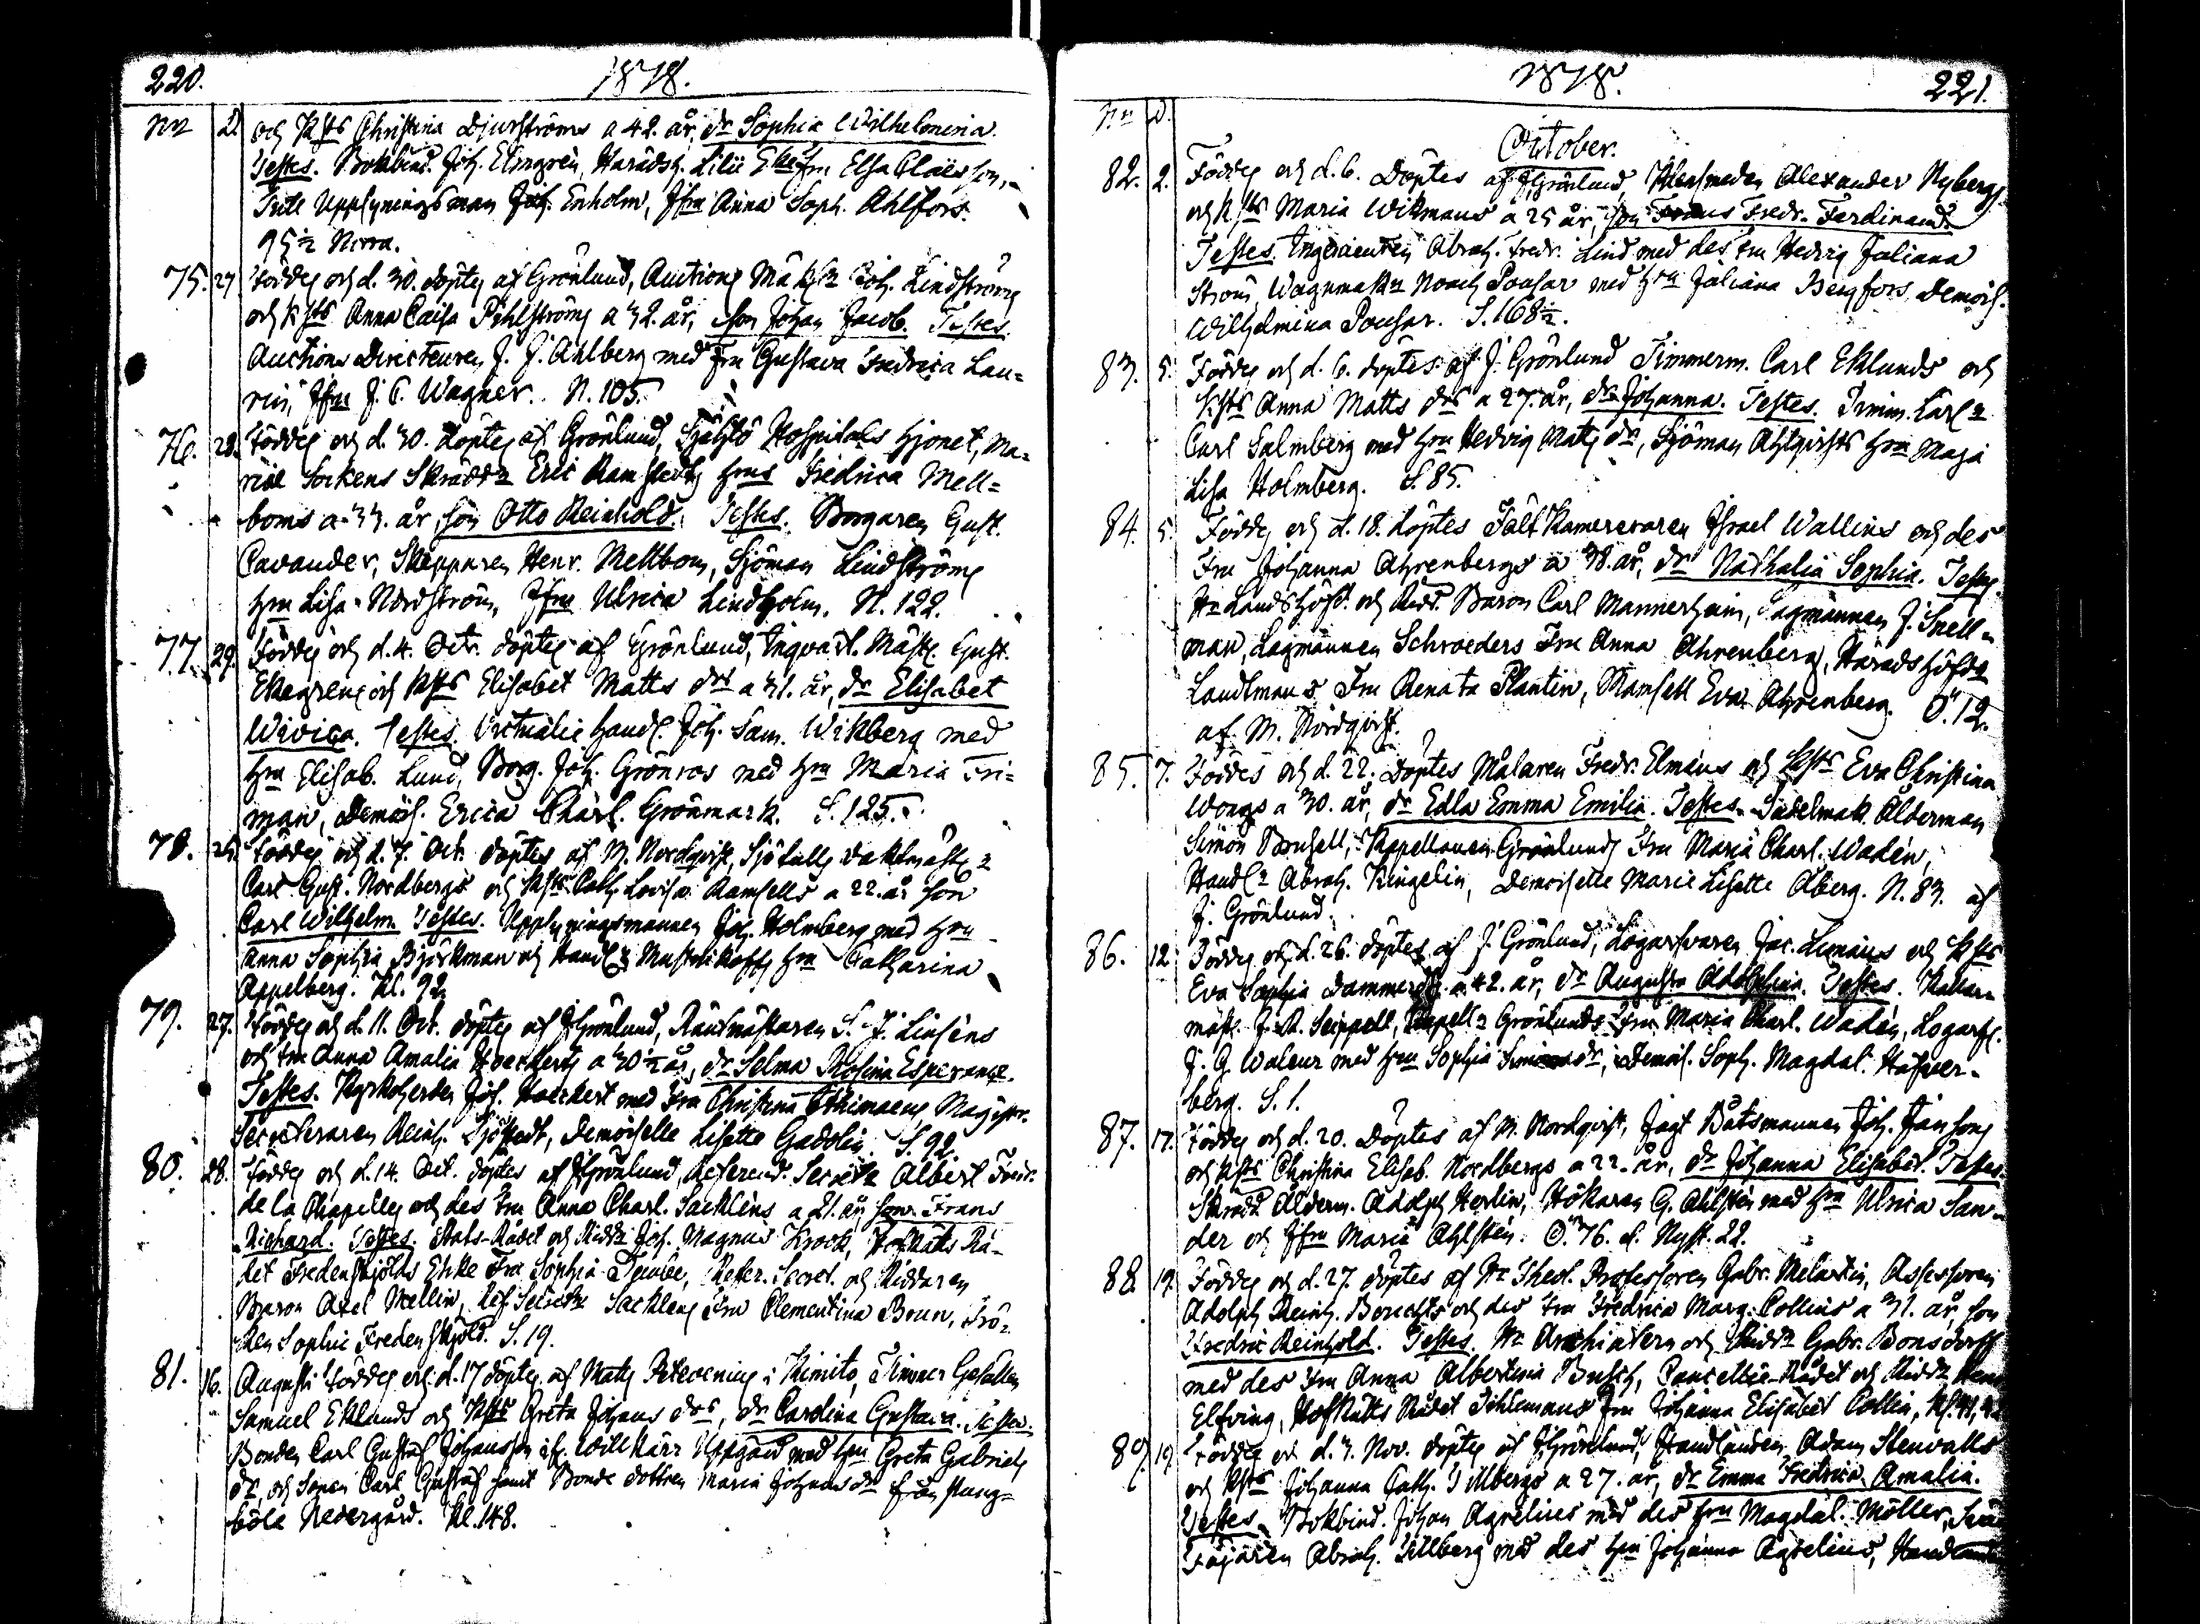 220.
1818.
Nr D.
och K:sts Christina Djurströms a 42. år, dr Sophia Wilhelmina.
Testes. Bokbind. Joh. Elmgren, Häradsh. Lilii Fru Elsa Claësson,
Upsyningsman Joh. Enholm, Jfru Anna Soph. Ahlfors.
95 1/2 Norra.
75. 27 Föddes och d. 30. döptes af Grönlund, Auctions Mäkl:n Joh. Lindströms
och K:sts Anna Caisa Pihlströms a 32. år, son Johan Jacob. Testes.
Auctions Directeuren J. J. Ahlberg med Fru Gustava Fredrica Lau=
rin, Jfru J. C. Wagner. N. 105.
76. 28. Föddes och d. 30. döptes af Grönlund, Själö Hospitals hjonet, Ma=
riæ Sockens Skrädd:n Eric Ramstedts Hrus Fredrica Mell=
boms a 33. år son Otto Reinhold. Testes. Borgaren Gust.
Cavander, Skepparen Henr. Mellbom, Sjöman Lindströms
Hru Lisa Nordström, Jfru Ulrica Lindholm. N. 122.
77. 29. Föddes och d. 4. Octr. döptes af Grönlund, Gust.
Ekegrens och K:sts Elisabet Matts drs a 31. år, dr Elisabet
Wivica. Testes. Victualie Handl. Joh. Sam. Wikberg med
Hru Elisab. Lund, Borg. Joh. Grönroos med Hru Maria Fri=
man, Demois. Erica Charl. Grönmark. S. 125.
78. 25. Föddes och d. 7. Oct. döptes af M. Nordqvist, Sjötulls Vaktmäst:n
Carl Gust. Nordbergs och K:sts Cath. Lovisa Ramsells a 22. år son
Carl Wilhelm. Testes. Upsyningsmannen Joh. Holmberg med Hru
Anna Sophia Björkman och Handl:n Hru Catharina
Appelberg. Kl. 92.
79. 27. Föddes och d. 11. Oct. döptes af J Grönlund, Räntmästaren S. J. Linséns
och Fru Anna Amalia Hoeckerts a 30 1/2 år, dr Selma Rosina Esperance.
Testes. Kyrkoherden Joh. Hoeckert med Fru Christina Magistr.
Secreteraren Reinh. Sjöstedt, Demoiselle Lisette Gadolin. S. 92.
80. 28. Föddes och d. 14. Oct. döptes af J Grönlund, Referend. Secret:n Albert Fredr.
de la Chapelles och des Fru Anna Charl. Sackléns a 21. år son Frans
Richard. Testes. Stats-Rådet och Ridd:n Joh. Magnus Krook, HofRätts Rå=
det Fredenskjölds Enke Fru Sophia Refer. Secret. och Riddaren
Baron Axel Mellin, Ref Secret:n Sackléns Fru Clementina Brun, Frö=
ken Sophie Fredenskjöld. S. 19.
81. 16. Augusti föddes och d. 17 döptes af Matts i Kimito, Timmer Gesällen
Samuel Eklunds och K:sts Greta Johans drs, dr Carolina Gustava. Testes.
Bonden Carl Gustaf Johansson if. Willkärr Uppgård med Hru Greta Gabriels
dr, och Sonen Carl Gustaf samt Bonde dottren Maria Johans dr från Stang=
böle Nedergård. Kl. 148.
1818.
221.
Nr D.
October.
82. 2. Föddes och d. 6. döptes af J Grönlund, Klensmeden Alexander Nybergs
och K:sts Maria Wikmans a 25 år, son Frans Fredr. Ferdinand.
Testes. Ingenieuren Abrah. Fredr. Lind med des Fru Hedvig Juliana
Ström, Wagnmak:n Noach Pousar med Hru Juliana Bergfors, Demois.
Wilhelmina Pousar. S. 168 1/2.
83. 5. Föddes och d. 6. döptes af J. Grönlund Timmerm. Carl Eklunds och
K:sts Anna Matts drs a 27. år, dr Johanna. Testes. Timm. Carl:n
Carl Salmberg med Hru Hedvig Matts dr, Sjöman Ahlqvists Hru Maja
Lisa Holmberg. S. 85.
84. 5. Föddes och d. 18. döptes Fält Kamereraren Israel Wallins och des
Fru Johanna Ahrenbergs a 38. år, dr Nathalia Sophia. Testes.
Hr Landshöfd. och Ridd. Baron Carl Mannerheim, Lagmannen J. Snell=
man, Lagmannen Schroeders Fru Anna Ahrenberg, Häradshöfd:n
Landtmans Fru Renata Plantin, Mamsell Eva Ahrenberg. Ö. 12.
af M. Nordqvist.
85. 7. Föddes och d. 22. döptes Målaren Fredr. Elmans och K:sts Eva Christina
Wongs a 30. år, dr Edla Emma Emilia. Testes. Sadelmak. Ålderman
Simon Bonsell, Kappellanen Grönlunds Fru Maria Charl. Wadén,
Handl:n Abrah. Kingelin, Demoiselle Marie Lisette Åberg. N. 83. af
J. Grönlund.
86. 12 Föddes och d. 26. döptes af J. Grönlund, Logarfvaren Jac. Limans och K:sts
Eva Sophia Dammerts a 42. år, dr Augusta Adolphina. Testes. Kakelm=
mäst. J. A. Seippell, Kapell:n Grönlunds Fru Maria Charl. Wadén, Logarf.
J. G. Waleur med Hru Sophia Simons dr, Demois. Soph. Magdal. Hafver=
berg. S. 1.
87. 17. Föddes och d. 20. döptes af M. Nordqvist, Jagt Båtsmannen Joh. Jansons
och K:sts Christina Elisab. Nordbergs a 22. år, dr Johanna Elisabet. Testes.
Skrädd. Ålderm. Adolph Herlin, Hökaren G. Ahlstén med Hru Ulrica San=
der och Jfru Maria Ahlstén. Ö. 76. el. Nyst. 22.
88. 19. Föddes och d. 27. döptes af Hr Theol. Professoren Gabr. Melartin, Assessoren
Adolph Reinh. Borichts och des Fru Fredrica Marg. Collins a 31. år, son
Fredric Reinhold. Testes. Hr Archiatern och Ridd:n Gabr. Bonsdorff
med des Fru Anna Albertina Busch, Cancellie-Rådet och Ridd:n
Elfving, HofRätts Rådet Tihlemans Fru Johanna Elisabet Collin,
89. 19. Föddes och d. 3. Nov. döptes af J Grönlund, Handlanden Adam Stenvalls
och K:sts Johanna Cath. Tillbergs a 27. år, dr Emma Fredrica Amalia.
Testes. Bokbind. Johan Agrelius med des Hru Magdal. Möller,
Färjaren Abrah. Tillberg med des Hru Johanna Agrelius,